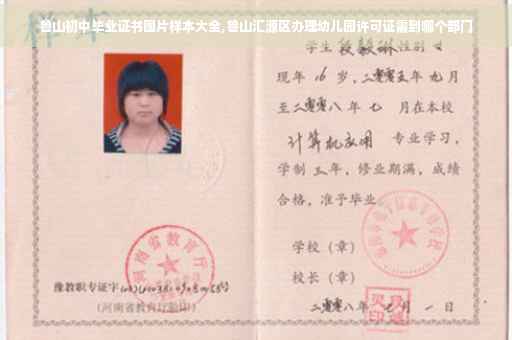 鲁山初中毕业证书图片样本大全,鲁山汇源区办理幼儿园许可证需到哪个部门
学生 段毅琳 性别 女
现年 16 岁,二零零五年 九月
至二零零八年 七 月在本校
计算机应用 专业学习,
学制 三年,修业期满,成绩
合格,准予毕业
学校(章)
校长(章)
二零零八年 七月 一日
河南省教育厅
豫教职专证字
(河南省教育厅验印)